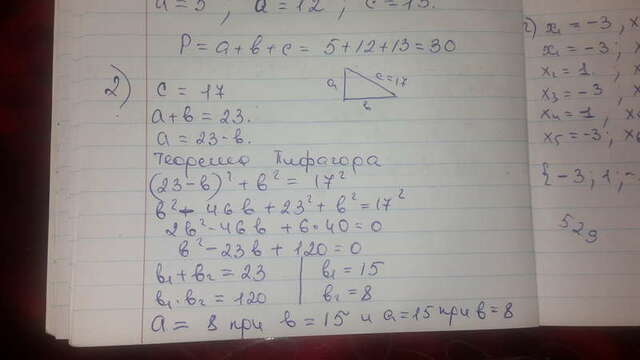 a = 5 , a = 12 , c = 13.
P = a+b+c = 5+12+13=30
2)
c = 17
a c=17
b
a+b = 23.
a = 23-b.
Теорема Пифагора
(23-b)² + b² = 17²
b² - 46b + 23² + b² = 17²
2b² - 46b + 6·40 = 0
b² - 23b + 120 = 0
b₁ + b₂ = 23 | b₁ = 15
b₁·b₂ = 120 | b₂ = 8
a = 8 при b = 15 и a = 15 при b = 8
x₁ = -3 ,
x₁ = -3 ;
x₂ = 1
x₃ = -3 ,
x₄ = -1 ,
x₅ = -3;
{-3; 1; -
529